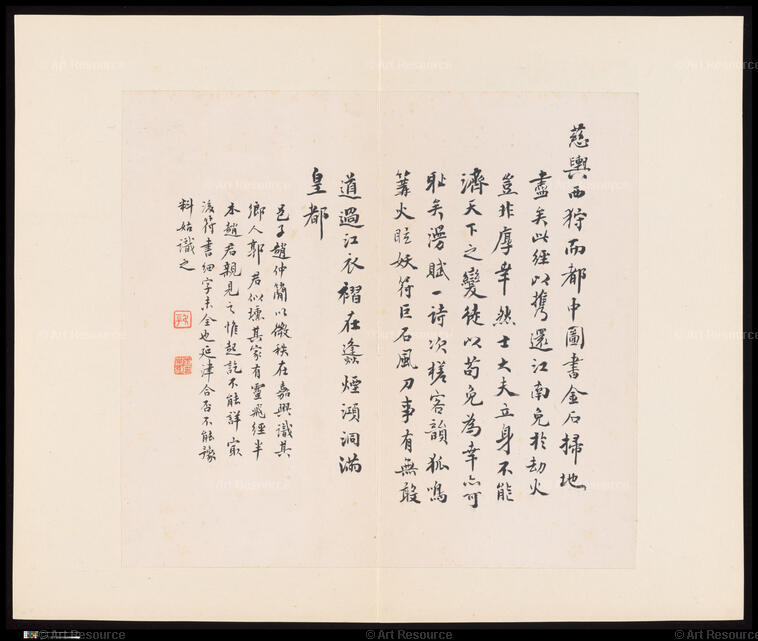 慈輿西狩而都中圖書金石掃地
盡矣此經以攜還江南免於劫火
豈非厚幸然士大夫立身不能
濟天下之變徒以苟免為幸亦可
耻矣漫賦一詩次槎客韻狐鳴
篝火眩妖符巨石風刀事有無敢
道過江衣褶在㷭煙澒洞滿
皇都
邑子趙仲簡以微秩在嘉興識其
鄉人郭君似壎其家有靈飛經半
本趙君親見之惟起訖不能詳最
後符書細字未全也延津合否不能豫
料姑識之
© Art Resource
© Art Resource
© Art Resource
© Art Resource
© Art Resource
© Art Resource
© Art Resource
© Art Resource
© Art Resource
© Art Resource
© Art Resource